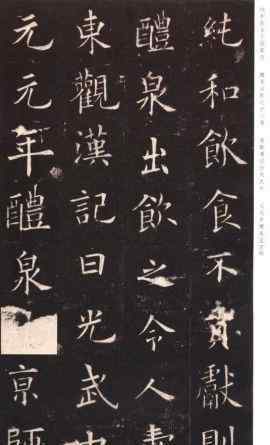 純和飲食不貢獻則
醴泉出飲之令人壽
東觀漢記曰光武中
元元年醴泉京師